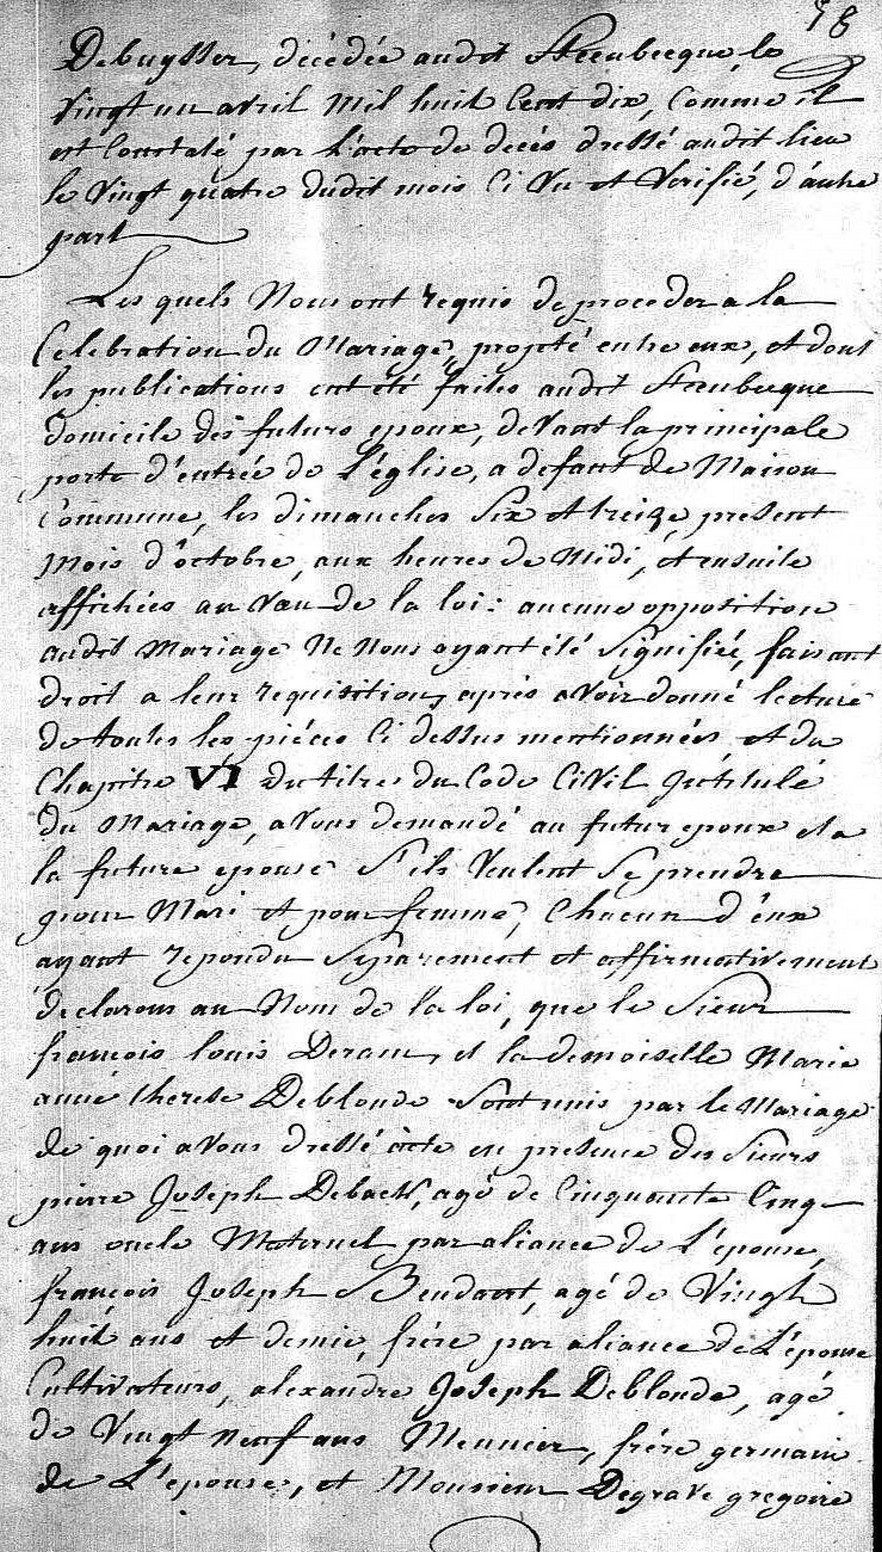 58
Debuysser, décédée audit Steenbecque, le
Vingt un avril mil huit Cent dix, Comme il
est Constaté par l'acte de decés dressé audit lieu
le Vingt quatre dudit mois Ci Vu et Verifié, d'autre
part
Les quels Nous ont requis de proceder a la
Celebration du Mariage, projeté entre eux, et dont
les publications ont été faites audit Steenbecque
domicile des futurs epoux, deVant la principale
porte d'entrée de l'église, a defaut de Maison
Commune, les dimanches Six et treize, present
Mois d'octobre, aux heures de Midi, et ensuite
affichées au Vœu de la loi: aucune opposition
audit Mariage Ne Nous ayant été Signifiée, faisant
droit a leur requisition, aprés aVoir donné lecture
de toutes les piéces Ci dessus mentionnées et du
Chapitre VI du titre du Code CiVil Jntitulé
du Mariage, aVons demandé au futur epoux et a
la future epouse S'ils Veulent Se prendre
pour Mari et pour femme, Chacun d'eux
ayant repondu Séparement et affirmativement
declarons au Nom de la loi, que le Sieur
françois louis Deram, et la demoiselle Marie
anne therese Deblonde Sont unis par le Mariage
de quoi aVons dressé acte en presence des Sieurs
pierre Joseph Debaets, agé de Cinquante Cinq
ans oncle Maternel par aliance de l'epouse,
françois Joseph Beudaert, agé de Vingt
huit ans et demie, frére par aliance de L'épouse
Cultivateurs, alexandre Joseph Deblonde, agé
de Vingt neuf ans Meunier, frére germain
de L'epouse, et Monsieur Degrave gregoire